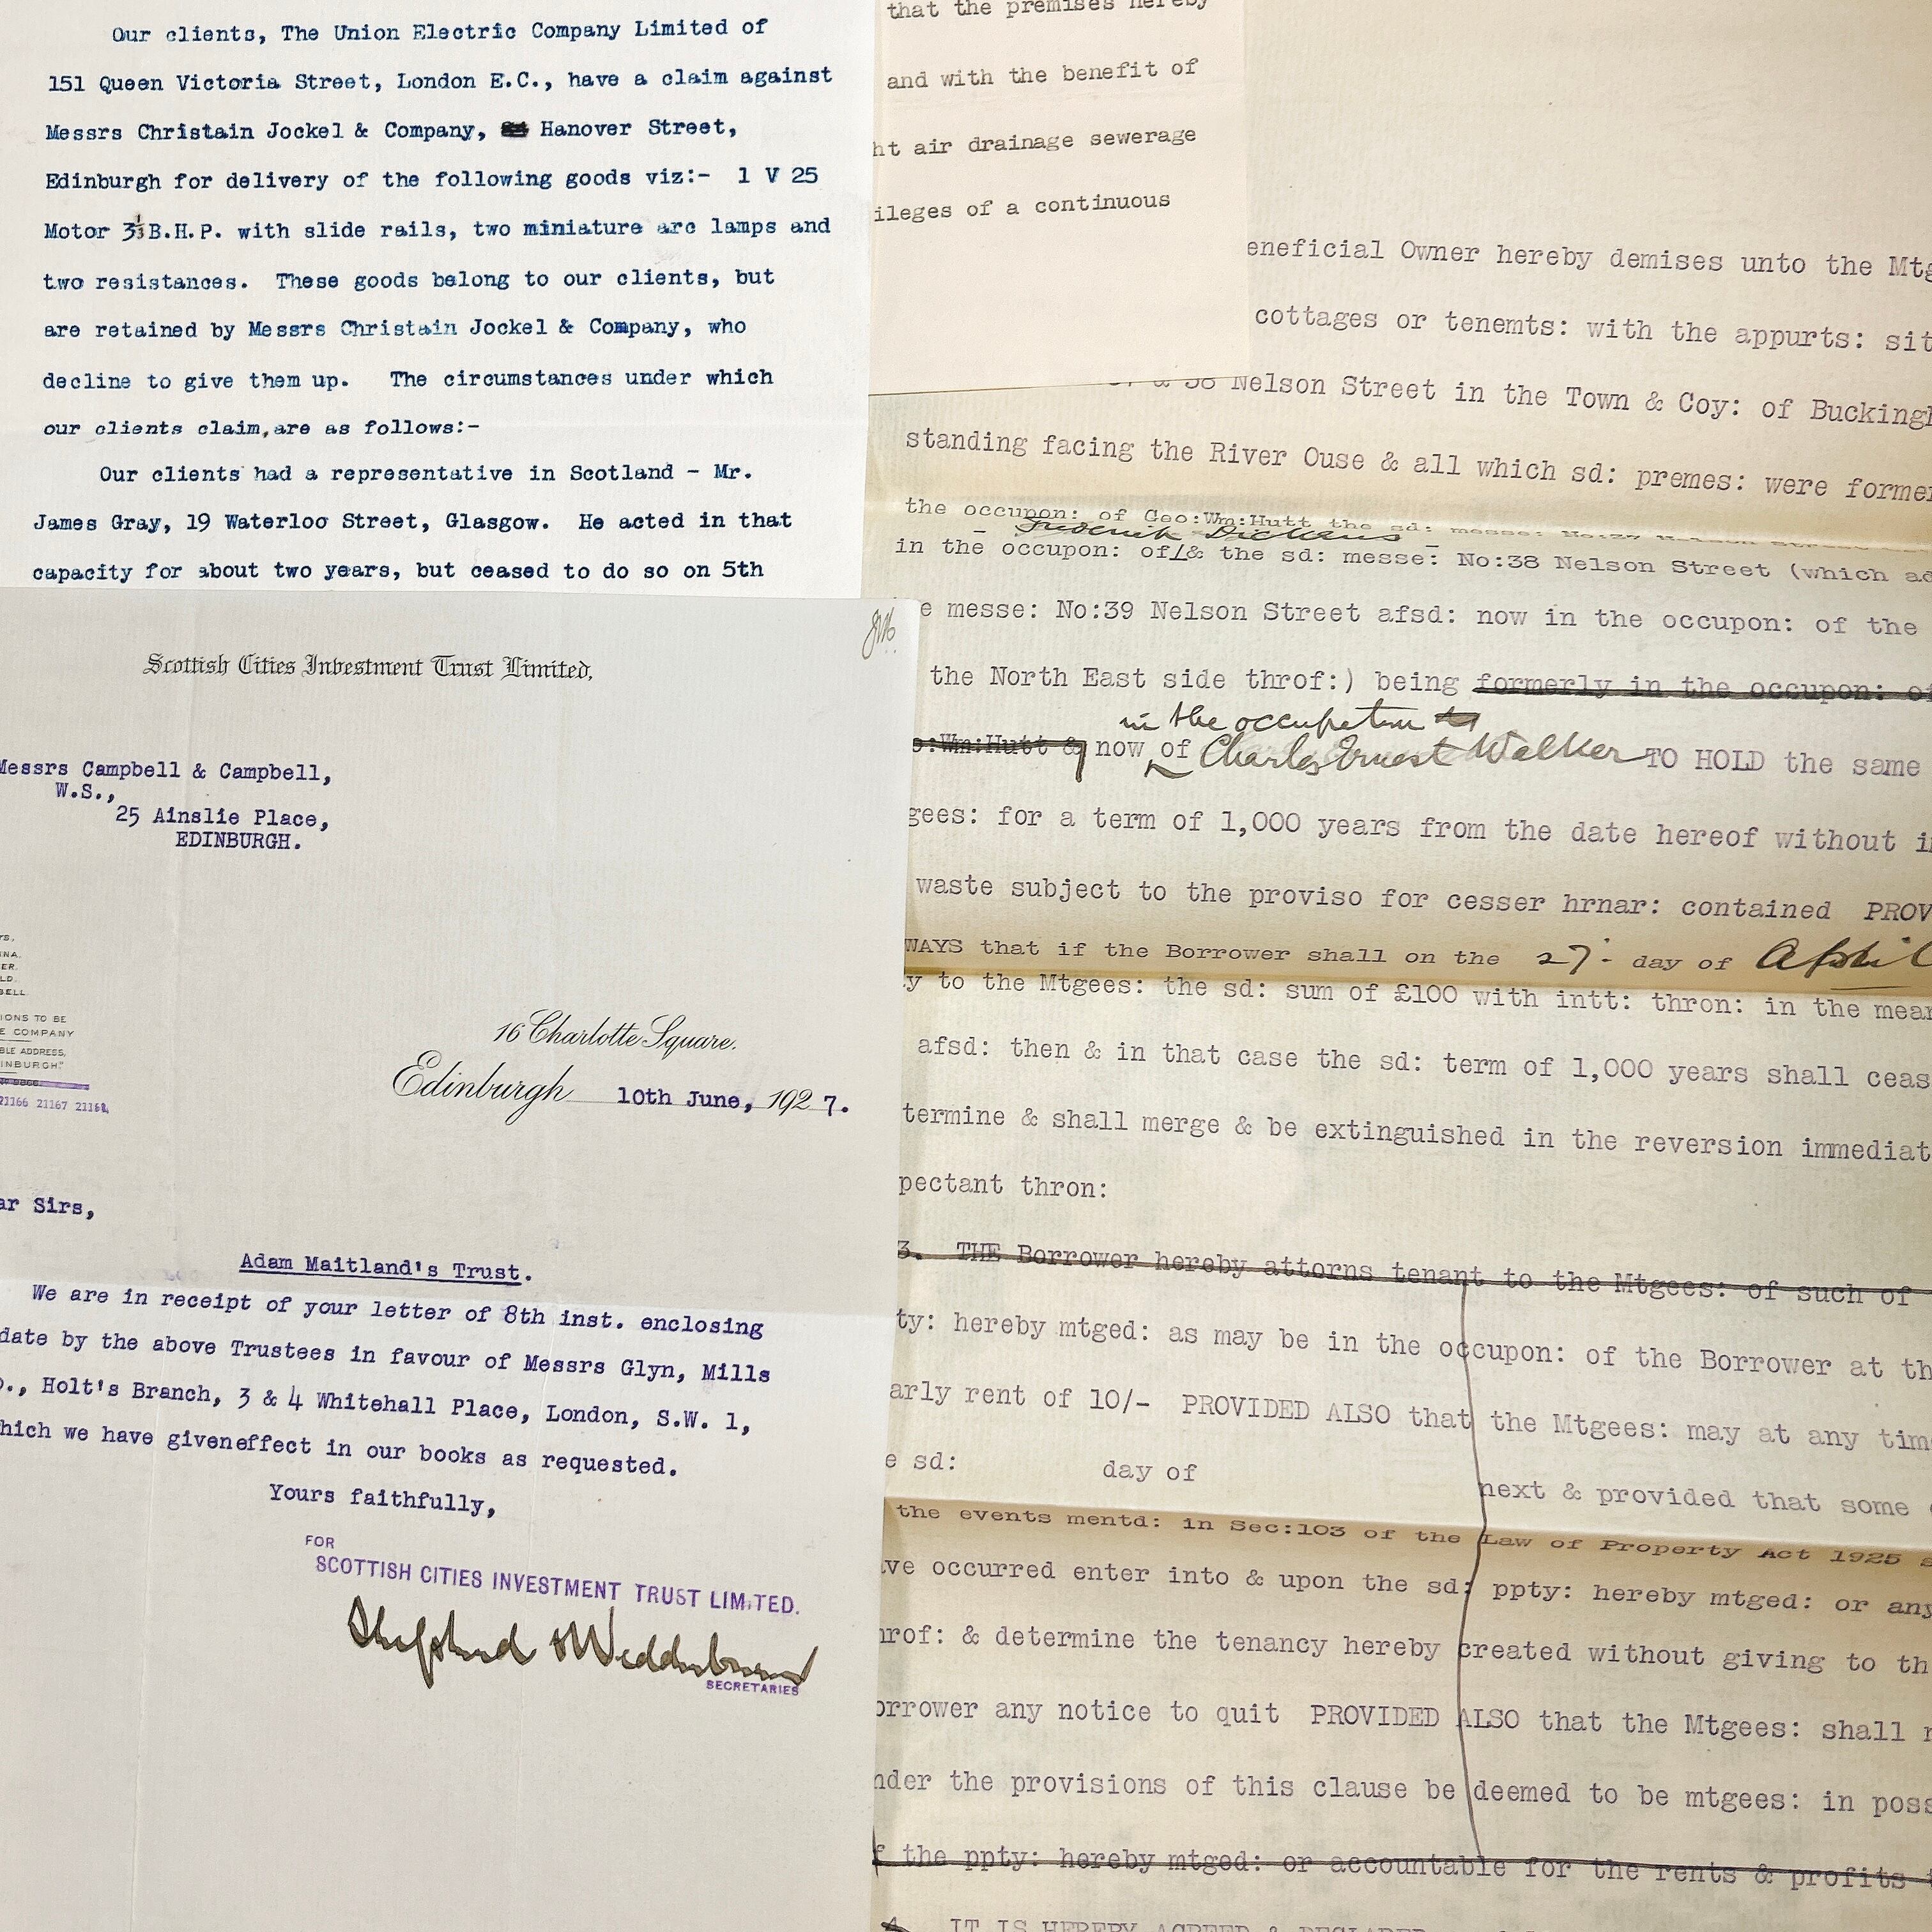 Our clients, The Union Electric Company Limited of
151 Queen Victoria Street, London E.C., have a claim against
Messrs Christain Jockel & Company, Hanover Street,
Edinburgh for delivery of the following goods viz:- 1 V 25
Motor 3½ B.H.P. with slide rails, two miniature arc lamps and
two resistances. These goods belong to our clients, but
are retained by Messrs Christain Jockel & Company, who
decline to give them up. The circumstances under which
our clients claim, are as follows:-
Our clients had a representative in Scotland - Mr.
James Gray, 19 Waterloo Street, Glasgow. He acted in that
capacity for about two years, but ceased to do so on 5th
Scottish Cities Investment Trust Limited,
Messrs Campbell & Campbell,
W.S.,
25 Ainslie Place,
EDINBURGH.
IONS TO BE
E COMPANY
BLE ADDRESS,
INBURGH."
21166 21167 21168
16 Charlotte Square.
Edinburgh 10th June, 1927.
ar Sirs,
Adam Maitland's Trust.
We are in receipt of your letter of 8th inst. enclosing
date by the above Trustees in favour of Messrs Glyn, Mills
o., Holt's Branch, 3 & 4 Whitehall Place, London, S.W. 1,
hich we have giveneffect in our books as requested.
Yours faithfully,
FOR
SCOTTISH CITIES INVESTMENT TRUST LIMITED.
Shepherd & Wedderburn
SECRETARIES
that the premises hereby
and with the benefit of
ht air drainage sewerage
ileges of a continuous
eneficial Owner hereby demises unto the Mtg
cottages or tenemts: with the appurts: sit
& 38 Nelson Street in the Town & Coy: of Buckingh
standing facing the River Ouse & all which sd: premes: were former
the occupon: of Geo:Wm:Hutt the sd: messe: No:37 Nelson Street
Frederick Dickens
in the occupon: of & the sd: messe: No:38 Nelson Street (which ad
e messe: No:39 Nelson Street afsd: now in the occupon: of the
the North East side throf:) being formerly in the occupon: of
in the occupation
o:Wm:Hutt & now of Charles Ernest Walker TO HOLD the same
gees: for a term of 1,000 years from the date hereof without i
waste subject to the proviso for cesser hrnar: contained PROV
WAYS that if the Borrower shall on the 27 day of April
y to the Mtgees: the sd: sum of £100 with intt: thron: in the mean
afsd: then & in that case the sd: term of 1,000 years shall ceas
termine & shall merge & be extinguished in the reversion immediat
pectant thron:
3. THE Borrower hereby attorns tenant to the Mtgees: of such of
ty: hereby mtged: as may be in the occupon: of the Borrower at th
arly rent of 10/- PROVIDED ALSO that the Mtgees: may at any tim
e sd: day of next & provided that some
the events mentd: in Sec:103 of the Law of Property Act 1925 s
ave occurred enter into & upon the sd: ppty: hereby mtged: or any
hrof: & determine the tenancy hereby created without giving to th
orrower any notice to quit PROVIDED ALSO that the Mtgees: shall n
nder the provisions of this clause be deemed to be mtgees: in poss
f the ppty: hereby mtged: or accountable for the rents & profits t
4. IT IS HEREBY AGREED & DECLARED